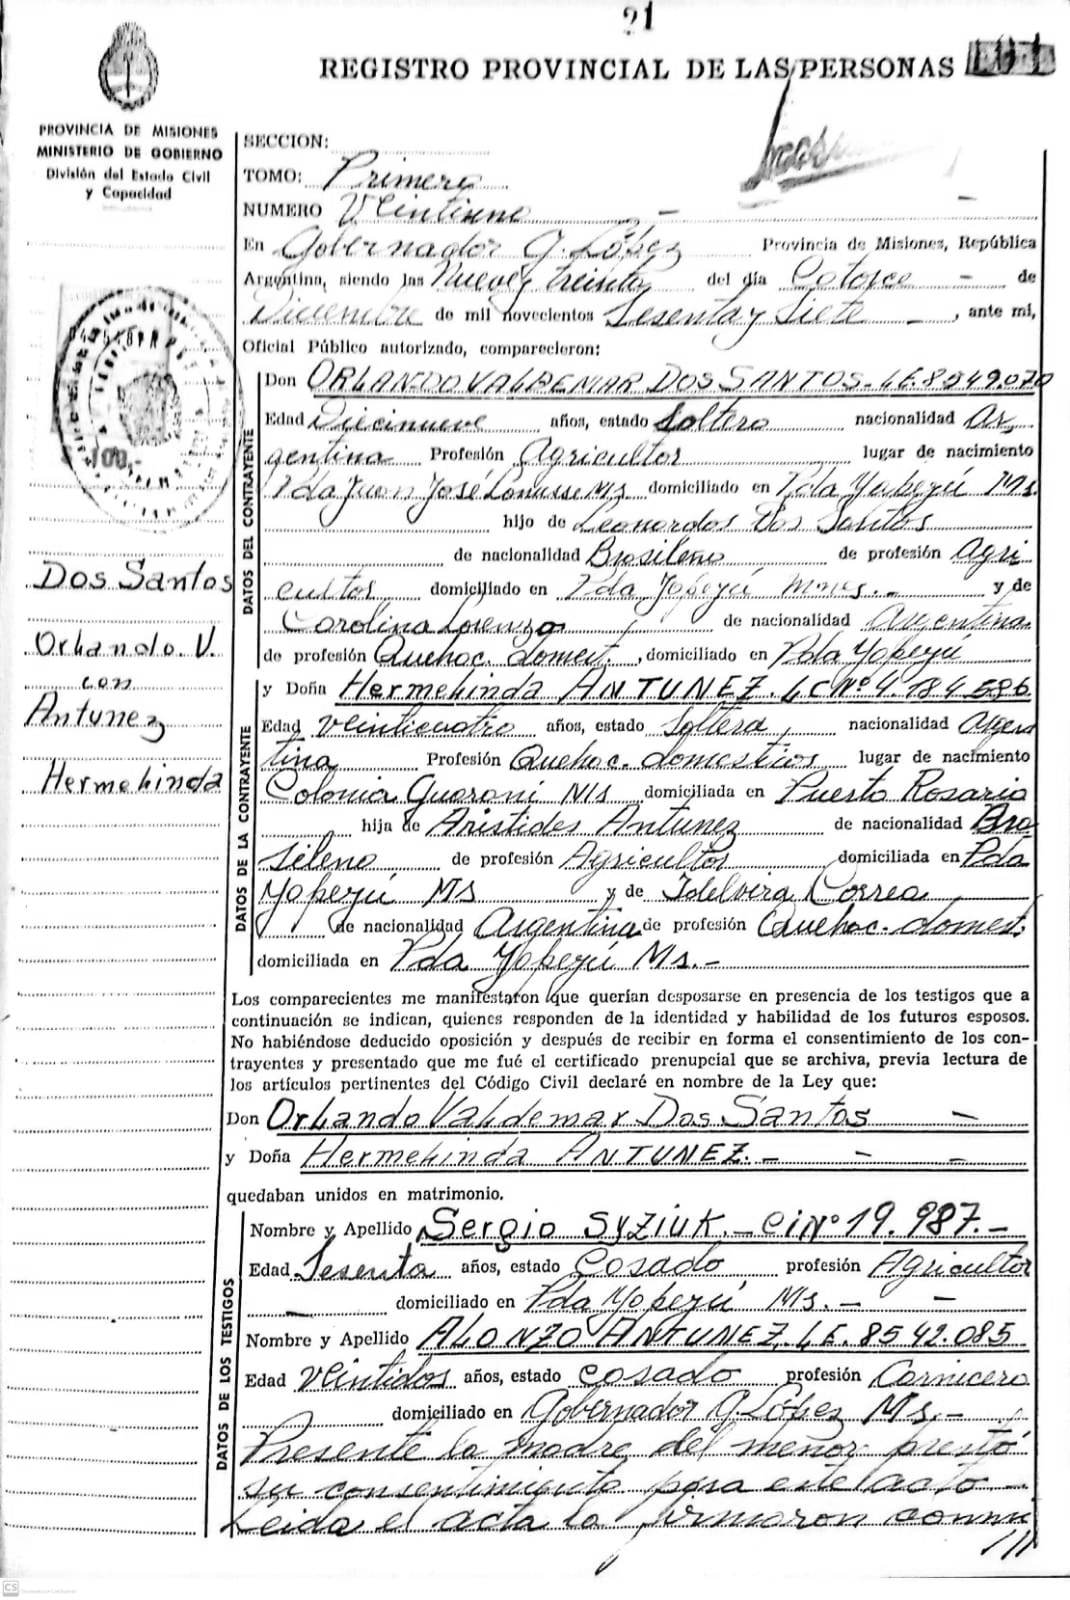 21
REGISTRO PROVINCIAL DE LAS PERSONAS
PROVINCIA DE MISIONES
MINISTERIO DE GOBIERNO
División del Estado Civil
y Capacidad
SECCION:
TOMO: Primero
NUMERO Veintiuno
En Gobernador G. López Provincia de Misiones, República
Argentina, siendo las Nueve y treinta del día Catorce - de
Diciembre de mil novecientos Sesenta y Siete - , ante mi,
Oficial Público autorizado, comparecieron:
DATOS DEL CONTRAYENTE
Don ORLANDO VALDEMAR DOS SANTOS-LE.8549.070
Edad Diecinueve años, estado Soltero nacionalidad Ar
gentina Profesión Agricultor lugar de nacimiento
Pda Juan José Lanusse Ms domiciliado en Pda Yapeyú Ms.
hijo de Leonardos Dos Santos
de nacionalidad Brasileno de profesión Agri
cultor domiciliado en Pda Yapeyú Mnes.- y de
Carolina Lorenzo de nacionalidad Argentina
de profesión Quehac. domest. , domiciliado en Pda Yapeyú
DATOS DE LA CONTRAYENTE
y Doña Hermelinda ANTUNEZ. LC Nº 4.184.586
Edad Veinticuatro años, estado Soltera, nacionalidad Argen
tina Profesión Quehac. domesticos lugar de nacimiento
Colonia Guaraní Ms domiciliada en Puerto Rosario
hija de Aristides Antunez de nacionalidad Bra
sileno de profesión Agricultor domiciliada en Pda
Yapeyú Ms y de Idelvira Correa
de nacionalidad Argentina de profesión Quehac. domest.
domiciliada en Pda Yapeyú Ms.-
Los comparecientes me manifestaron que querían desposarse en presencia de los testigos que a
continuación se indican, quienes responden de la identidad y habilidad de los futuros esposos.
No habiéndose deducido oposición y después de recibir en forma el consentimiento de los con-
trayentes y presentado que me fué el certificado prenupcial que se archiva, previa lectura de
los artículos pertinentes del Código Civil declaré en nombre de la Ley que:
Don Orlando Valdemar Dos Santos -
y Doña Hermelinda ANTUNEZ. - - -
quedaban unidos en matrimonio.
DATOS DE LOS TESTIGOS
Nombre y Apellido Sergio SYZIUK.-CI Nº 19.987.-
Edad Sesenta años, estado Casado profesión Agricultor
- domiciliado en Pda Yapeyú Ms. - -
Nombre y Apellido ALONZO ANTUNEZ, LE. 8542.085
Edad Veintidos años, estado Casado profesión Carnicero
domiciliado en Gobernador G. López Ms.-
Presente la madre del menor prestó
su consentimiento para este acto -
Leida el acta la firmaron conmi
///
100,-
Dos Santos
Orlando. V.
con
Antunez
Hermelinda
CS